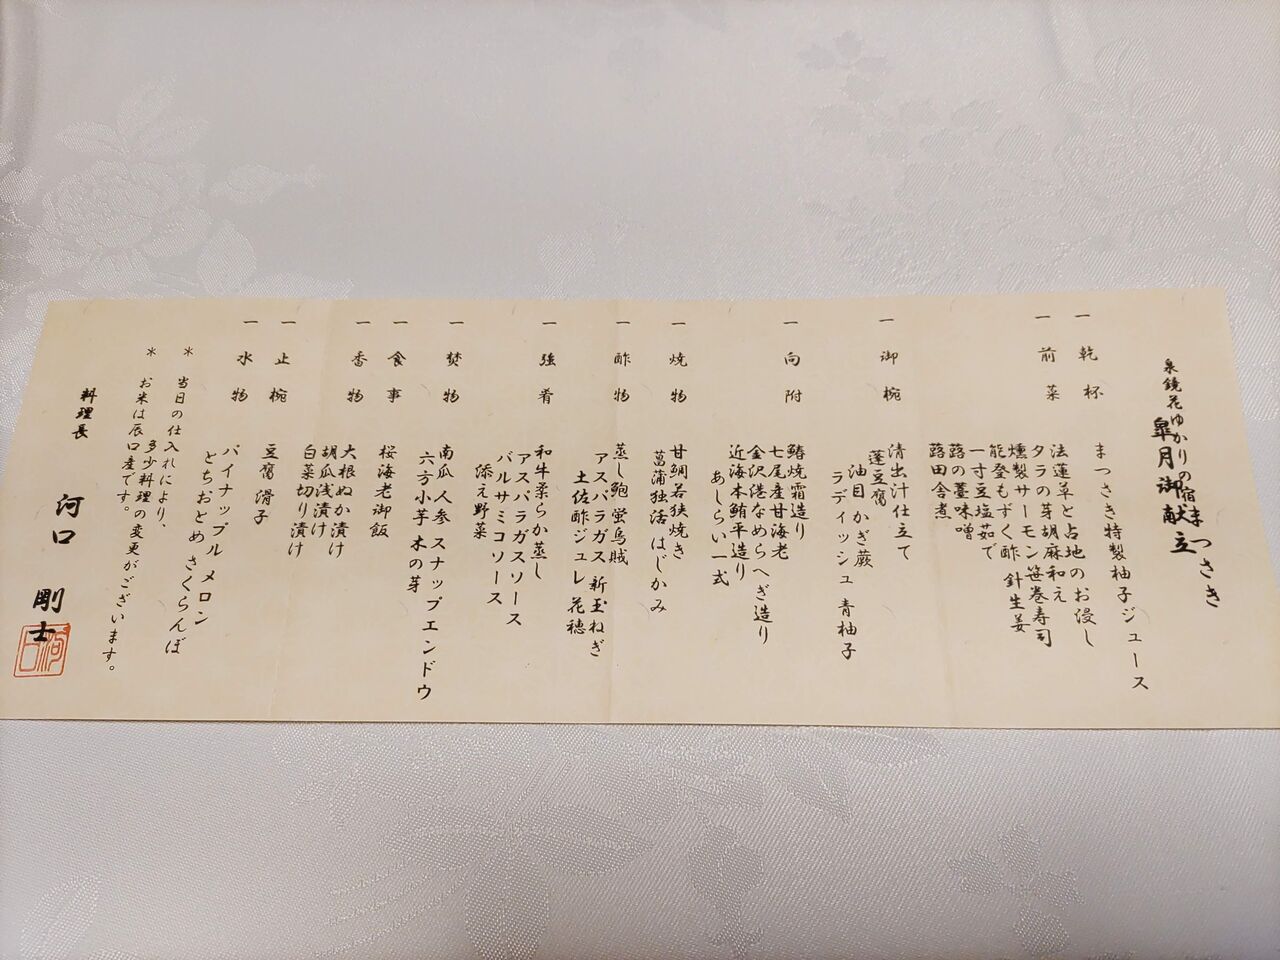 泉鏡花ゆかりの宿 まつさき
皐月御献立
一 乾杯
まつさき特製柚子ジュース
一 前菜
法蓮草と占地のお浸し
タラの芽胡麻和え
燻製サーモン笹巻寿司
能登もずく酢 針生姜
一寸豆塩茹で
蕗の薹味噌
蕗田舎煮
一 御椀
清出汁仕立て
蓬豆腐
油目 かぎ蕨
ラディッシュ 青柚子
一 向附
鰆焼霜造り
七尾産甘海老
金沢港なめらへぎ造り
近海本鮪平造り
あしらい一式
一 焼物
甘鯛若狭焼き
菖蒲独活 はじかみ
一 酢物
蒸し鮑 蛍烏賊
アスパラガス 新玉ねぎ
土佐酢ジュレ 花穂
一 強肴
和牛柔らか蒸し
アスパラガスソース
バルサミコソース
添え野菜
一 焚物
南瓜 人参 スナップエンドウ
六方小芋 木の芽
一 食事
桜海老御飯
一 香物
大根ぬか漬け
胡瓜浅漬け
白菜切り漬け
一 止椀
豆腐 滑子
一 水物
パイナップル メロン
とちおとめ さくらんぼ
* 当日の仕入れにより、
多少料理の変更がございます。
* お米は辰口産です。
料理長 河口 剛士
河口